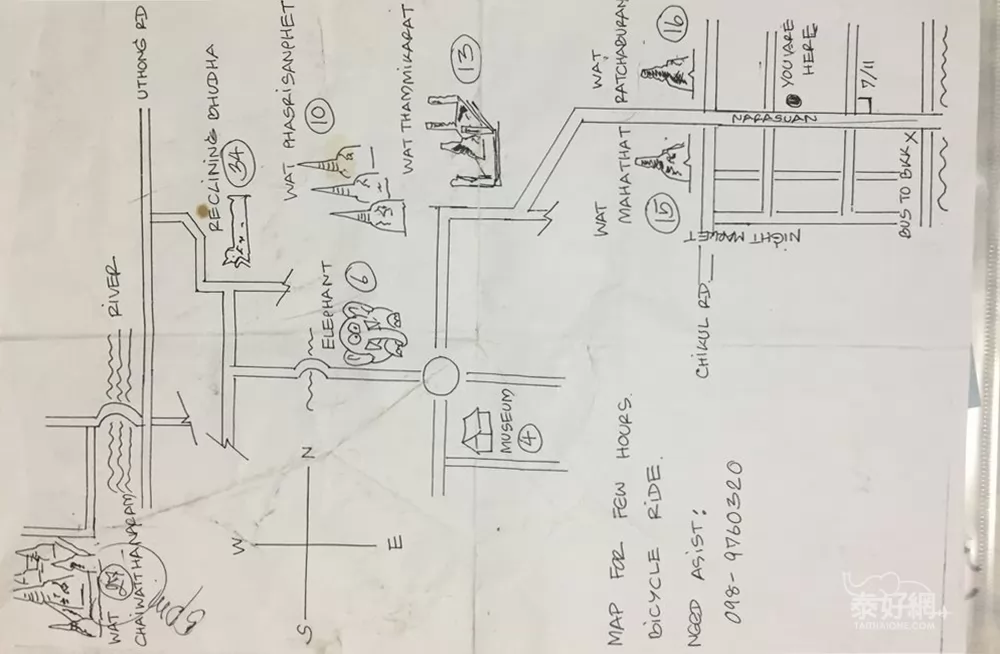 UTHONG RD
RIVER
RECLINING BHUDHA
34
WAT PHASRISANPHET
10
WAT THAMMIKARAT
13
WAT
RATCHABURANA
16
YOU ARE
HERE
7/11
NARASUAN
WAT
MAHATHAT
15
NIGHT MARKET
BUS TO BKK X
CHIKUL RD
ELEPHANT
6
MUSEUM
4
N
W
E
S
WAT
27
CHAIWATTHANARAM
5pm
MAP FOR FEW HOURS.
BICYCLE RIDE.
NEED ASIST:
098-9760320
泰好網